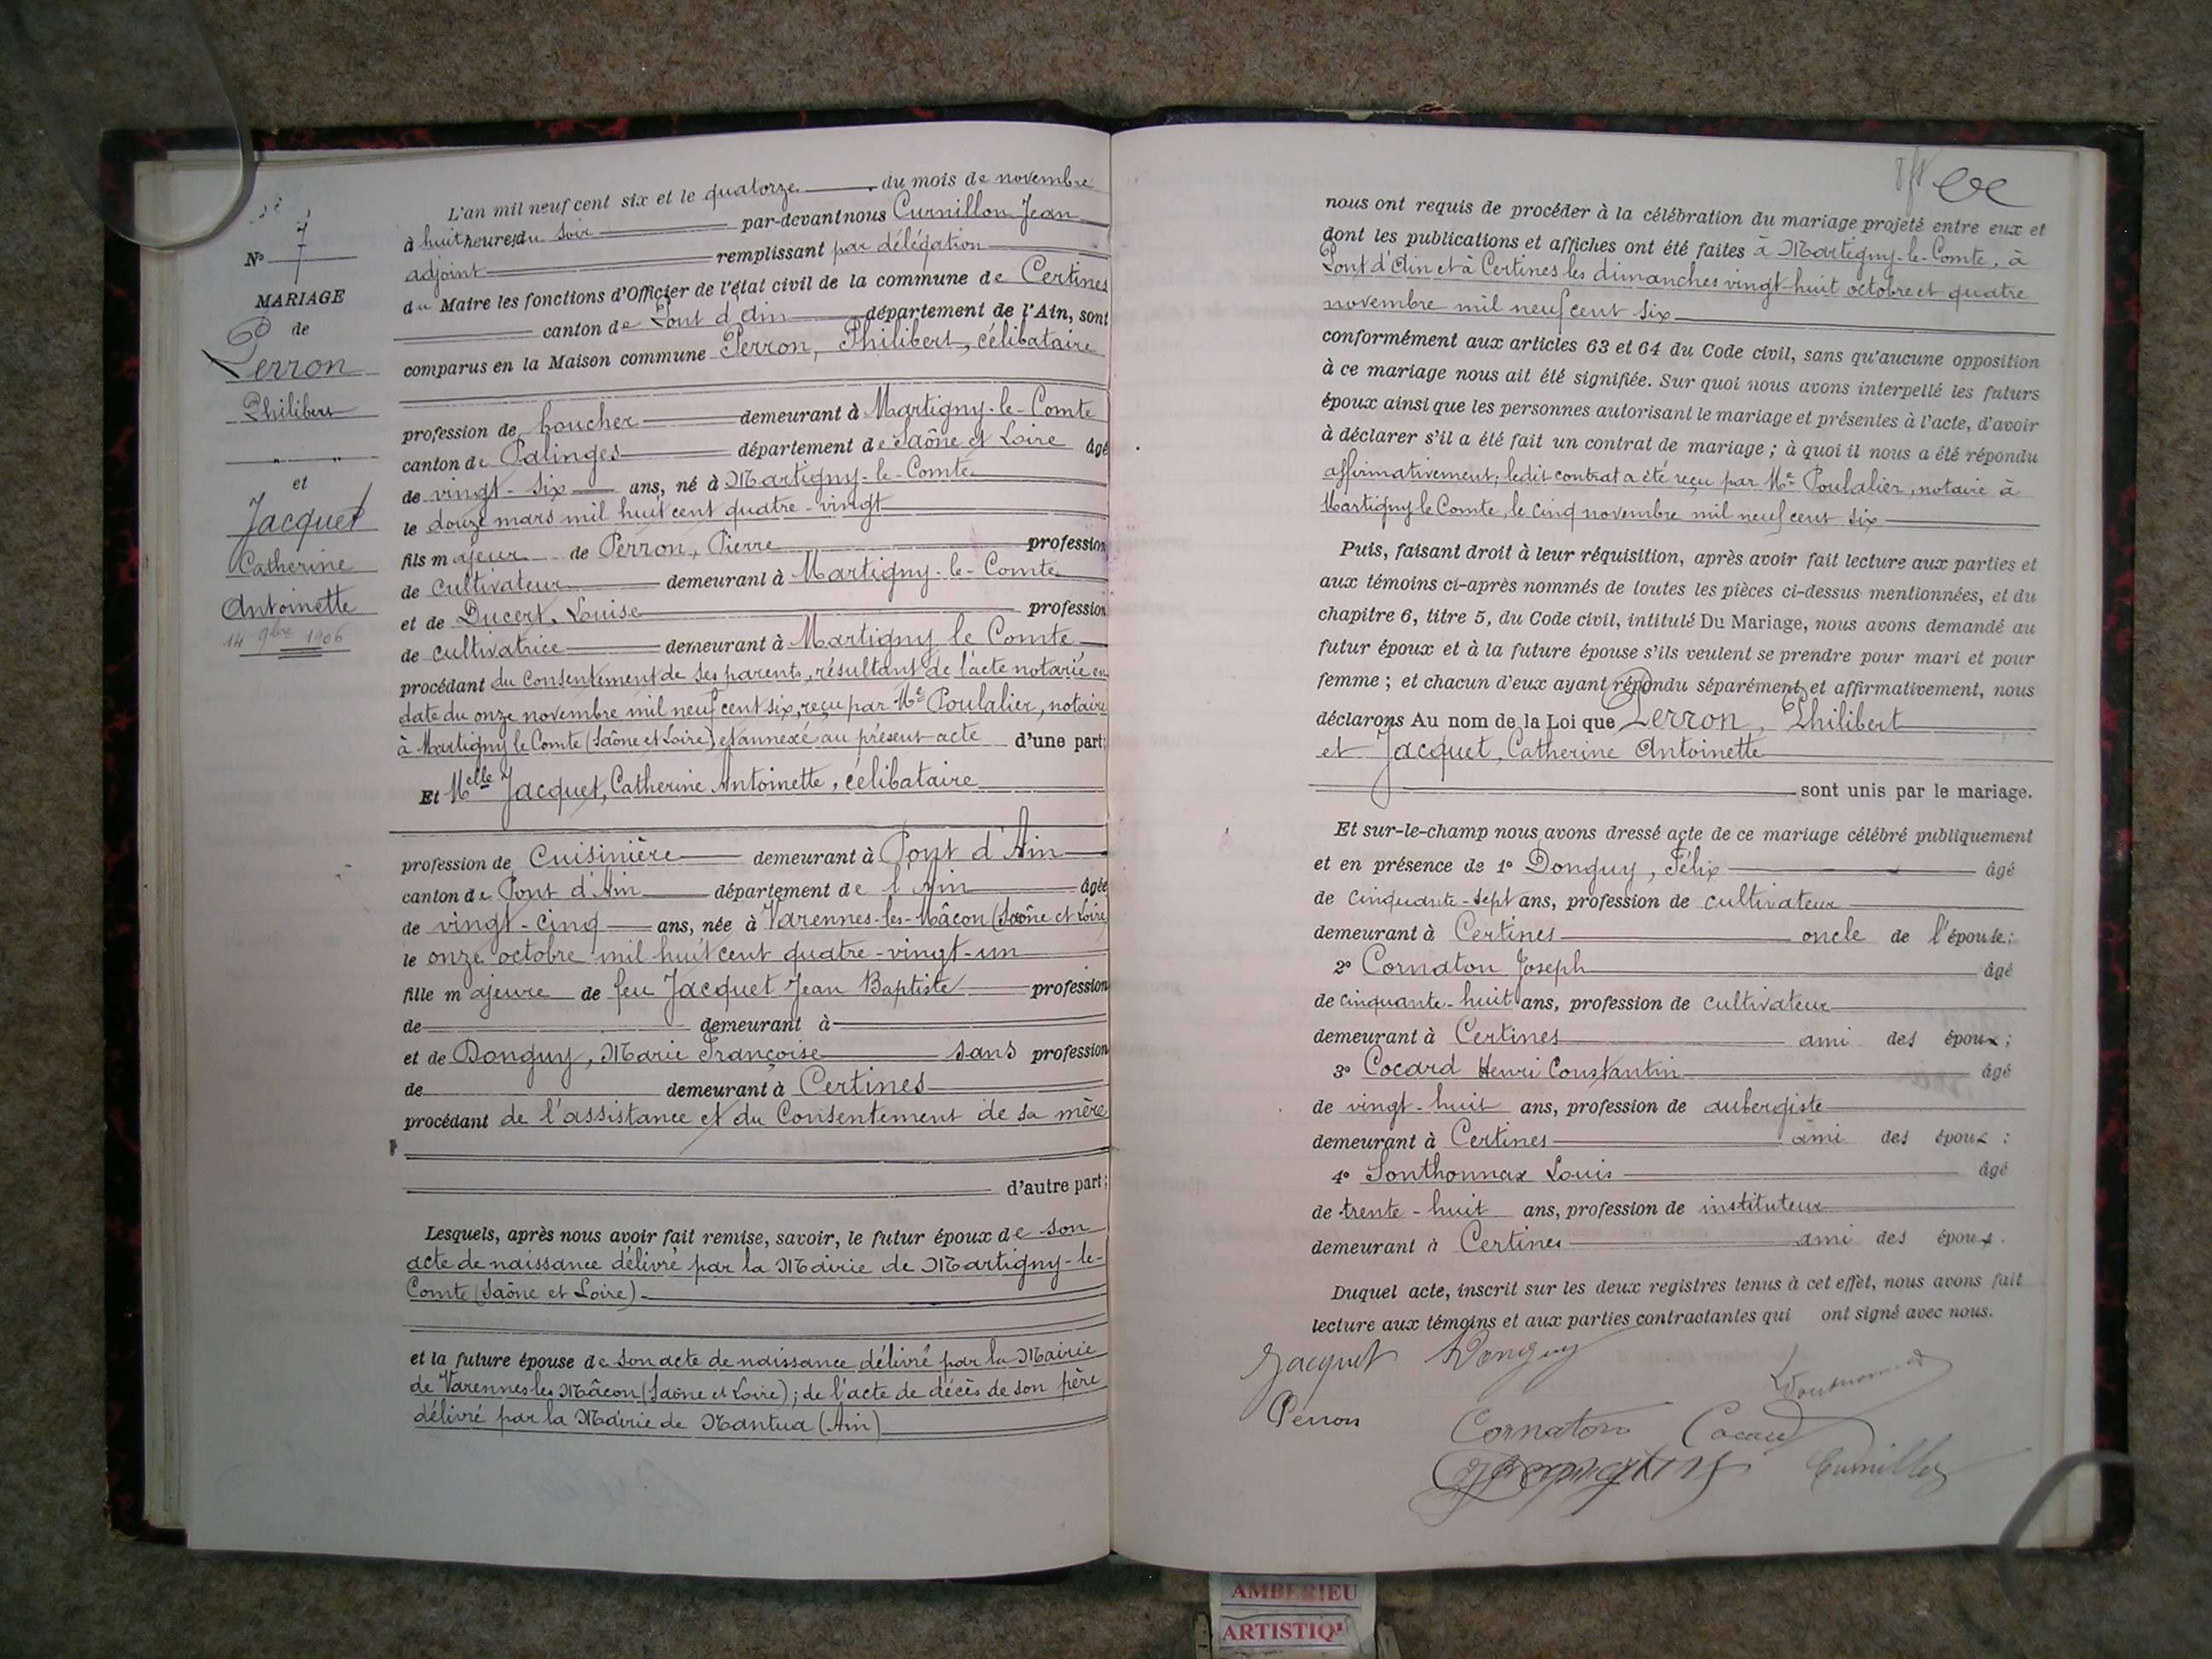 N° 7
MARIAGE
de
Perron
Philibert
et
Jacquet
Catherine
Antoinette
14 9bre 1906
L'an mil neuf cent six et le quatorze du mois de novembre
à huit heures du soir par-devant nous Curnillon Jean
adjoint remplissant par délégation
du Maire les fonctions d'Officier de l'état civil de la commune de Certines
canton de Pont d'Ain département de l'Ain, sont
comparus en la Maison commune Perron, Philibert, célibataire
profession de boucher demeurant à Martigny-le-Comte
canton de Palinges département de Saône et Loire âgé
de vingt-six ans, né à Martigny-le-Comte
le douze mars mil huit cent quatre-vingt
fils majeur de Perron, Pierre profession
de cultivateur demeurant à Martigny-le-Comte
et de Ducert, Louise profession
de cultivatrice demeurant à Martigny le Comte
procédant du consentement de ses parents, résultant de l'acte notarié en
date du onze novembre mil neuf cent six, reçu par Me Poulalier, notaire
à Martigny le Comte (Saône et Loire) et annexé au présent acte d'une part;
Et Melle Jacquet, Catherine Antoinette, célibataire
profession de Cuisinière demeurant à Pont d'Ain
canton de Pont d'Ain département de l'Ain âgée
de vingt-cinq ans, née à Varennes-les-Mâcon (Saône et Loire)
le onze octobre mil huit cent quatre-vingt-un
fille majeure de feu Jacquet Jean Baptiste profession
de demeurant à
et de Donguy, Marie Françoise sans profession
de demeurant à Certines
procédant de l'assistance et du Consentement de sa mère
d'autre part;
Lesquels, après nous avoir fait remise, savoir, le futur époux de son
acte de naissance délivré par la Mairie de Martigny-le-
Comte (Saône et Loire).
et la future épouse de son acte de naissance délivré par la Mairie
de Varennes les Mâcon (Saône et Loire); de l'acte de décès de son père
délivré par la Mairie de Nantua (Ain)
nous ont requis de procéder à la célébration du mariage projeté entre eux et
dont les publications et affiches ont été faites à Martigny-le-Comte, à
Pont d'Ain et à Certines les dimanches vingt-huit octobre et quatre
novembre mil neuf cent six
conformément aux articles 63 et 64 du Code civil, sans qu'aucune opposition
à ce mariage nous ait été signifiée. Sur quoi nous avons interpellé les futurs
époux ainsi que les personnes autorisant le mariage et présentes à l'acte, d'avoir
à déclarer s'il a été fait un contrat de mariage; à quoi il nous a été répondu
affirmativement; ledit contrat a été reçu par Me Poulalier, notaire à
Martigny le Comte, le cinq novembre mil neuf cent six
Puis, faisant droit à leur réquisition, après avoir fait lecture aux parties et
aux témoins ci-après nommés de toutes les pièces ci-dessus mentionnées, et du
chapitre 6, titre 5, du Code civil, intitulé Du Mariage, nous avons demandé au
futur époux et à la future épouse s'ils veulent se prendre pour mari et pour
femme; et chacun d'eux ayant répondu séparément et affirmativement, nous
déclarons Au nom de la Loi que Perron, Philibert
et Jacquet, Catherine Antoinette
sont unis par le mariage.
Et sur-le-champ nous avons dressé acte de ce mariage célébré publiquement
et en présence de 1° Donguy, Félix âgé
de cinquante-sept ans, profession de cultivateur
demeurant à Certines oncle de l'épouse;
2° Cornaton Joseph âgé
de cinquante-huit ans, profession de cultivateur
demeurant à Certines ami des époux;
3° Cocard Henri Constantin âgé
de vingt-huit ans, profession de aubergiste
demeurant à Certines ami des époux;
4° Sonthonnax Louis âgé
de trente-huit ans, profession de instituteur
demeurant à Certines ami des époux.
Duquel acte, inscrit sur les deux registres tenus à cet effet, nous avons fait
lecture aux témoins et aux parties contractantes qui ont signé avec nous.
Jacquet Donguy
Perron Cornaton Cocard
Curnillon
AMBERIEU
ARTISTIQ